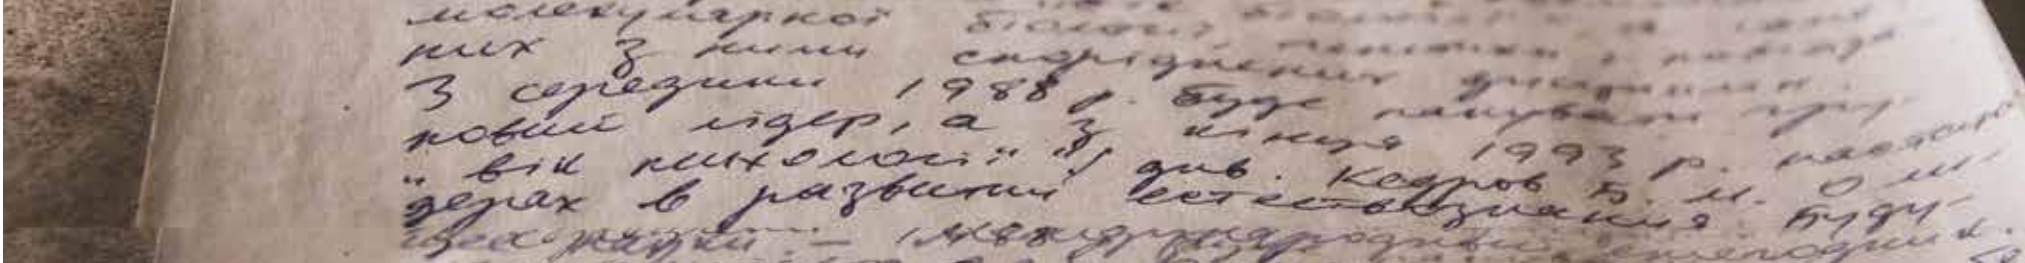 молекулярної біології,
них з ними споріднених дисциплін.
З середини 1988 р. буде панувати гру-
повий лідер, а з кінця 1993 р. настане
„вік психології" / див. Кедров Б. М. О ли-
дерах в развитии естествознания. Буду-
щее науки. – Международный ежегодник.